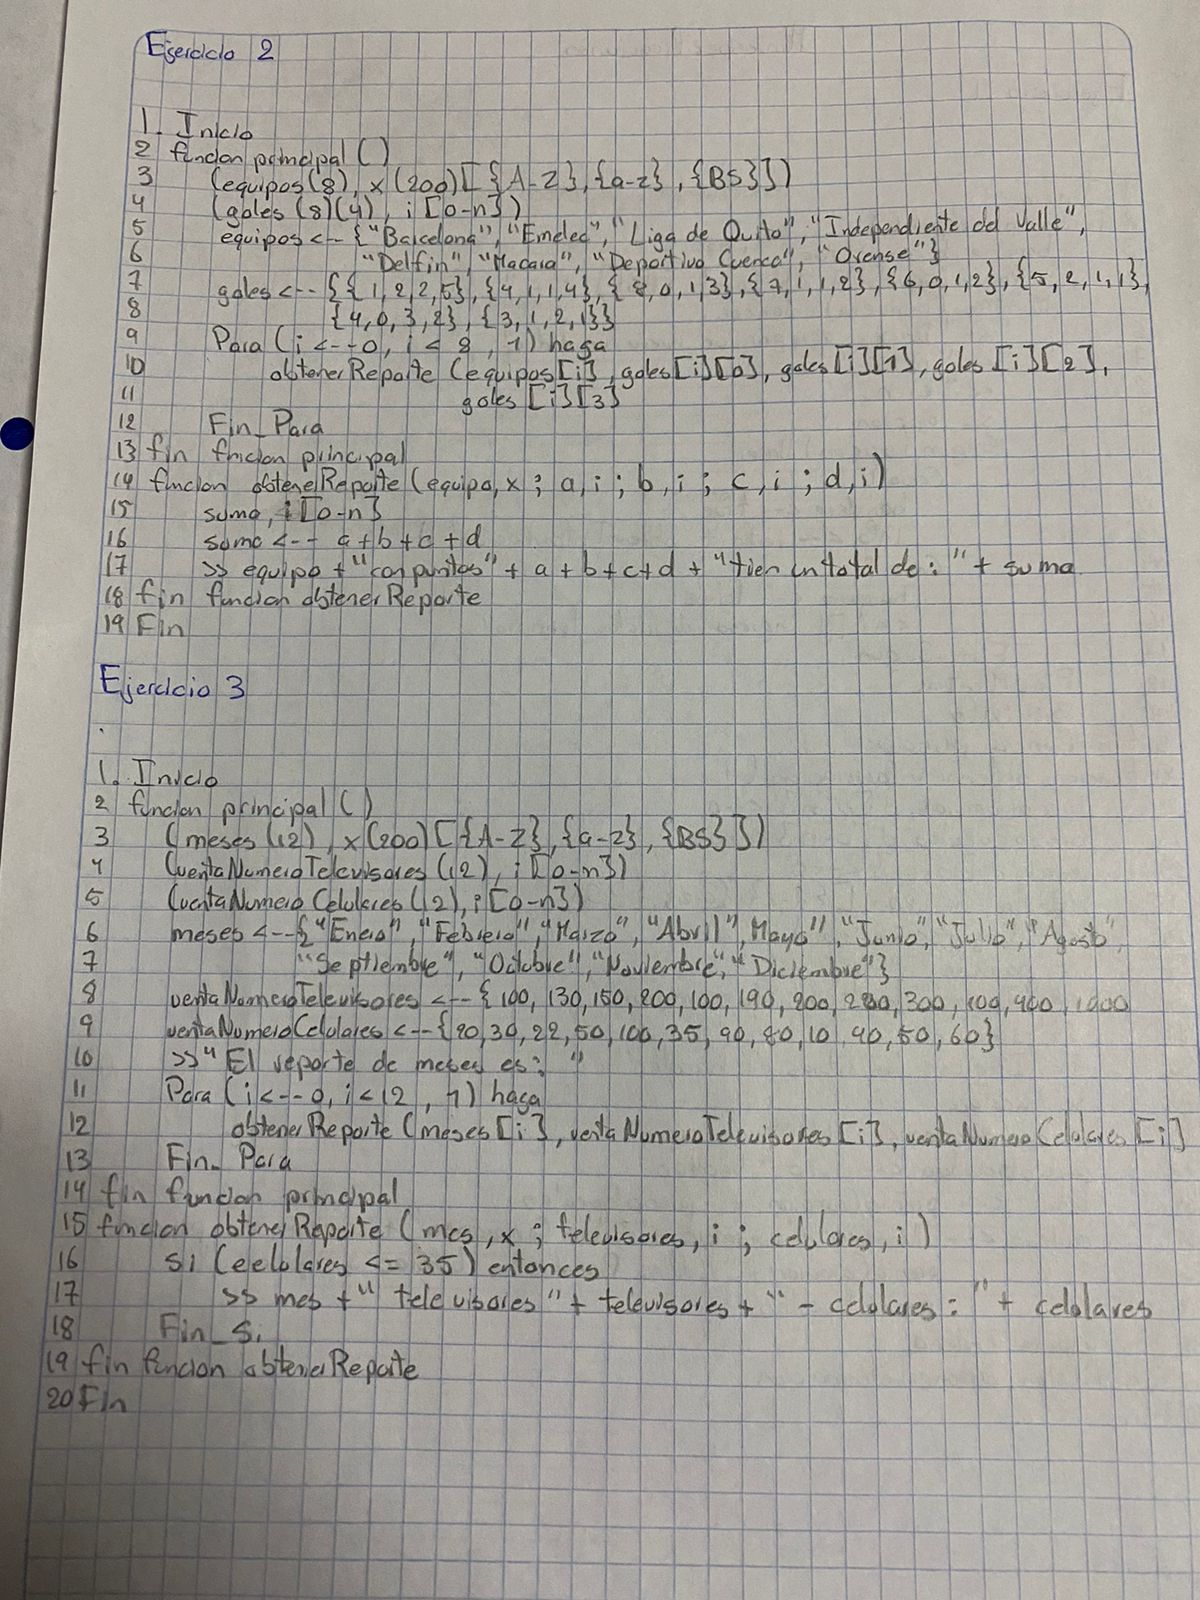 Ejercicio 2
1. Inicio
2 funcion principal ()
3 (equipos(8), x(200)[{A-Z},{a-z},{BS}])
4 (goles (8)(4), i [0-n])
5 equipos <-- {"Barcelona", "Emelec", "Liga de Quito", "Independiente del Valle",
6 "Delfin", "Macara", "Deportivo Cuenca", "Orense"}
7 goles <-- {{1,2,2,5}, {4,1,1,4}, {8,0,1,3}, {7,1,1,2}, {6,0,1,2}, {5,2,1,1},
8 {4,0,3,2}, {3,1,2,1}}
9 Para (i <--0, i < 8, 1) haga
10 obtenerReporte (equipos[i], goles[i][0], goles[i][1], goles [i][2],
11 goles [i][3]
12 Fin_Para
13 fin funcion principal
14 funcion obtenerReporte (equipo, x ; a,i ; b,i ; c,i ; d,i)
15 suma, i [0-n]
16 suma <-- a+b+c+d
17 >> equipo + "con puntos" + a + b + c + d + "tien un total de: " + suma
18 fin funcion obtenerReporte
19 Fin
Ejercicio 3
1. Inicio
2 funcion principal ()
3 (meses (12), x(200)[{A-Z},{a-z},{BS}])
4 (ventaNumeroTelevisores (12), i [0-n])
5 (ventaNumeroCelulares (12), i [0-n])
6 meses <--{"Enero", "Febrero", "Marzo", "Abril", Mayo", "Junio", "Julio", "Agosto",
7 "Septiembre", "Octubre", "Noviembre", "Diciembre"}
8 ventaNumeroTelevisores <--{ 100, 130, 150, 200, 100, 190, 200, 280, 300, 100, 400, 1000
9 ventaNumeroCelulares <--{20,30,22,50,100,35,90,80,10,40,50,60}
10 >>" El reporte de meses es: "
11 Para (i<--0, i<12, 1) haga
12 obtenerReporte (meses[i], ventaNumeroTelevisores[i], ventaNumeroCelulares[i]
13 Fin_ Para
14 fin funcion principal
15 funcion obtenerReporte (mes, x ; televisores, i ; celulares, i)
16 si (celulares <= 35) entonces
17 >> mes +" televisores "+ televisores + " - celulares: " + celulares
18 Fin_Si
19 fin funcion obtenerReporte
20 Fin